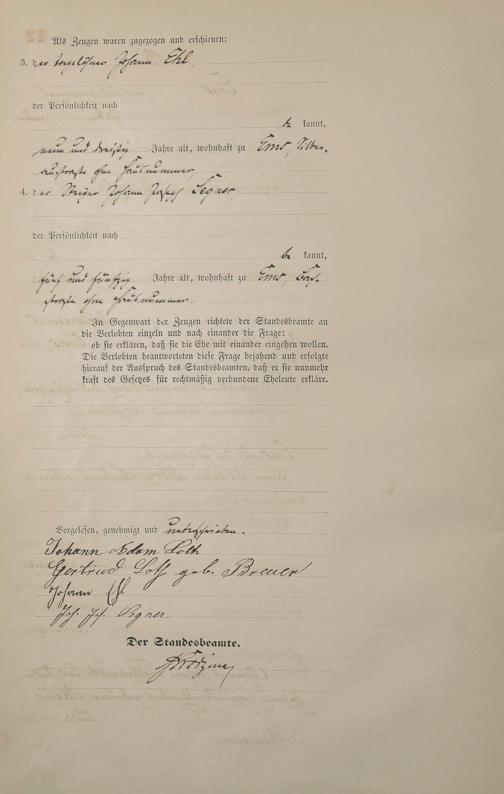 Als Zeugen waren zugezogen und erschienen:
3. der Tagelöhner Johann Ehl,
der Persönlichkeit nach
be kannt,
neun und dreißig Jahre alt, wohnhaft zu Ems, Silber-
austraße ohne Hausnummer,
4. der Steiger Johann Joseph Segner
der Persönlichkeit nach
be kannt,
fünf und fünfzig Jahre alt, wohnhaft zu Ems, Bach-
straße ohne Hausnummer.
In Gegenwart der Zeugen richtete der Standesbeamte an
die Verlobten einzeln und nach einander die Frage:
ob sie erklären, daß sie die Ehe mit einander eingehen wollen.
Die Verlobten beantworteten diese Frage bejahend und erfolgte
hierauf der Ausspruch des Standesbeamten, daß er sie nunmehr
kraft des Gesetzes für rechtmäßig verbundene Eheleute erkläre.
Vorgelesen, genehmigt und unterschrieben.
Johann Adam Loth
Gertrud Loth geb. Breuer
Johann Ehl
Joh. Jos. Segner
Der Standesbeamte.